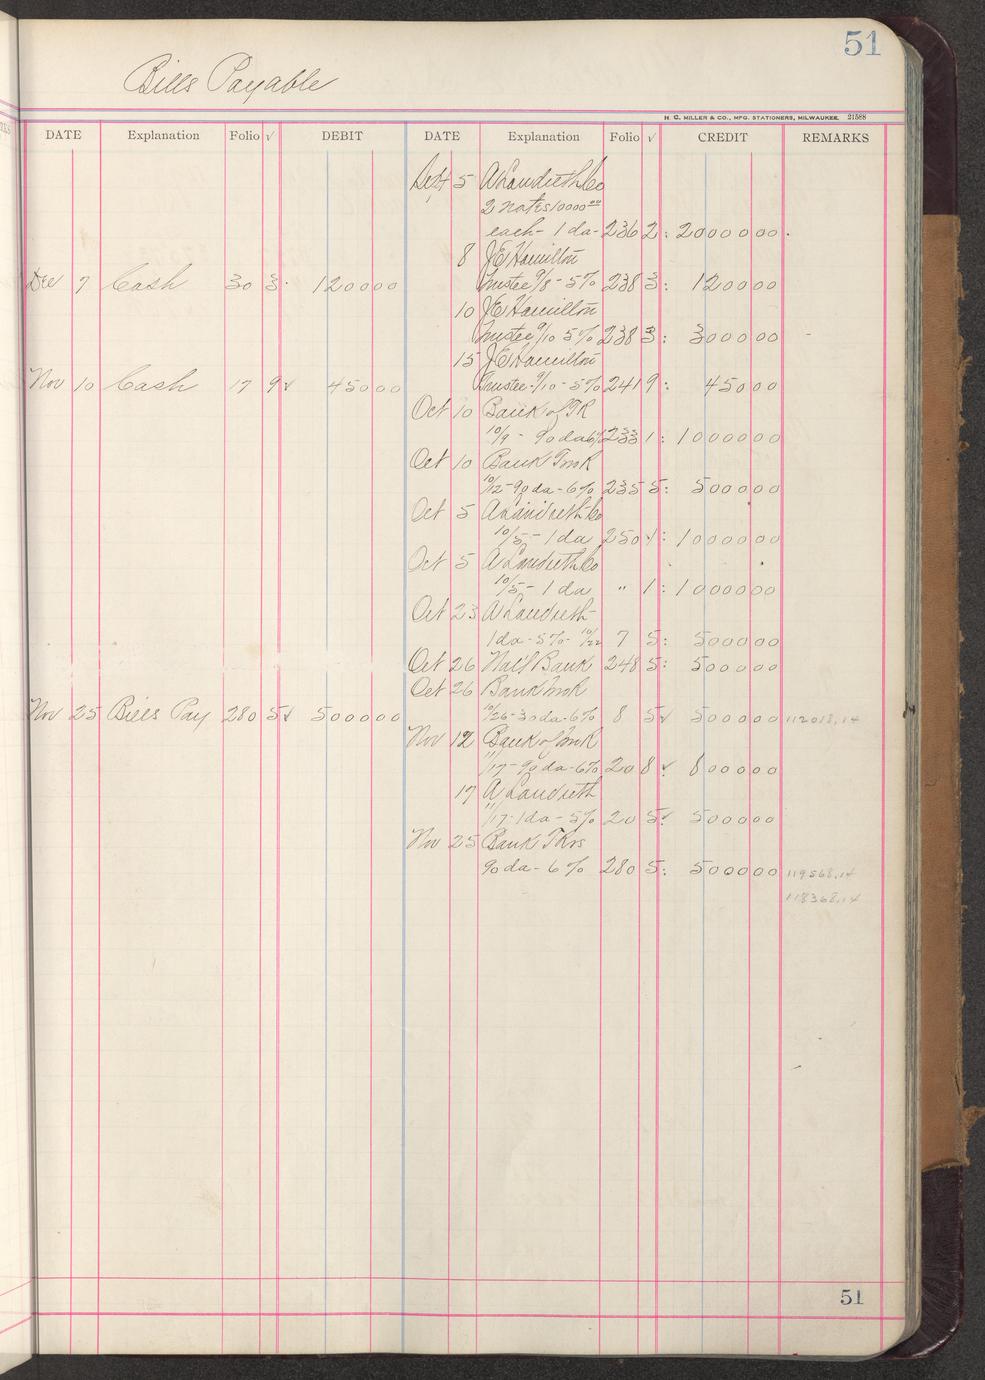 51
Bills Payable
H. C. MILLER & CO., MFG. STATIONERS, MILWAUKEE. 21588
DATE Explanation Folio √ DEBIT DATE Explanation Folio √ CREDIT REMARKS
Sept 5 A Landreth Co
2 notes 10000 00
each - 1 da - 236 2 : 20000 00
8 J E Hamilton
Dec 7 Cash 30 3 1200 00 Trustee 9/8 - 5% 238 3 : 1200 00
10 J E Hamilton
Trustee 9/10 5% 238 3 : 3000 00
15 J E Hamilton
Nov 10 Cash 17 9 √ 450 00 Trustee - 9/10 - 5% 241 9 : 450 00
Oct 10 Bank of TR
10/9 - 90 da 6% 233 1 : 10000 00
Oct 10 Bank
10/12 - 90 da - 6% 235 5 : 5000 00
Oct 5 A Landreth Co
10/5 - 1 da 250 : 10000 00
Oct 5 A Landreth Co
10/5 - 1 da " 1 : 10000 00
Oct 23 A Landreth
1 da - 5% - 10/22 7 5 : 5000 00
Oct 26 Nat'l Bank 248 5 : 5000 00
Oct 26 Bank
Nov 25 Bills Pay 280 5 √ 5000 00 10/26 - 30 da - 6% 8 5 √ 5000 00 112018.14
Nov 12 Bank of
11/17 - 90 da - 6% 20 8 √ 8000 00
17 A Landreth
11/17 - 1 da - 5% 20 5 √ 5000 00
Nov 25 Bank TKrs
90 da - 6% 280 5 : 5000 00 119568.14
118368.14
51